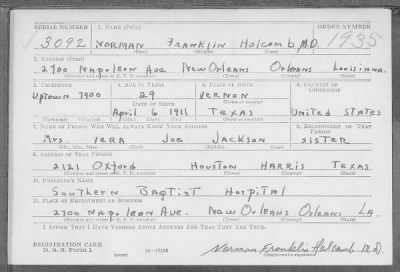 SERIAL NUMBER 1. NAME (Print) ORDER NUMBER
3092 NORMAN FRANKLIN HOLCOMB M.D. 1935
(First) (Middle) (Last)
2. ADDRESS (Print)
2700 NAPOLEON AVE NEW ORLEANS ORLEANS LOUISIANA.
(Number and street or R. F. D. number) (Town) (County) (State)
3. TELEPHONE 4. AGE IN YEARS 5. PLACE OF BIRTH 6. COUNTRY OF CITIZENSHIP
UPTOWN 7400 29 VERNON
DATE OF BIRTH (Town or county)
April 6 1911 TEXAS UNITED STATES
(Exchange) (Number) (Mo.) (Day) (Yr.) (State or country)
7. NAME OF PERSON WHO WILL ALWAYS KNOW YOUR ADDRESS 8. RELATIONSHIP OF THAT PERSON
MRS. VERA JOE JACKSON SISTER
(Mr., Mrs., Miss) (First) (Middle) (Last)
9. ADDRESS OF THAT PERSON
2121 OXFORD HOUSTON HARRIS TEXAS
(Number and street or R. F. D. number) (Town) (County) (State)
10. EMPLOYER'S NAME
SOUTHERN BAPTIST HOSPITAL
11. PLACE OF EMPLOYMENT OR BUSINESS
2700 NAPOLEON AVE. NEW ORLEANS ORLEANS LA.
(Number and street or R. F. D. number) (Town) (County) (State)
I AFFIRM THAT I HAVE VERIFIED ABOVE ANSWERS AND THAT THEY ARE TRUE.
REGISTRATION CARD
D. S. S. Form 1 Norman Franklin Holcomb M.D.